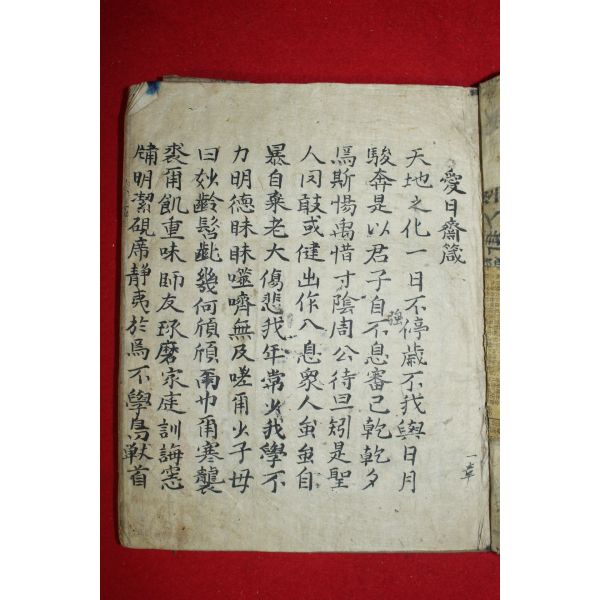 愛日齋箴
天地之化一日不停歲不我與日月
駿奔是以君子自不息審己乾乾夕
強
焉斯惕禹惜寸陰周公待旦矧是聖
人罔敢或健出作入息衆人蚩蚩自
暴自棄老大傷悲我年常少我學不
力明德昧昧噬嚌無及嗟爾少子毋
曰妙齡髫齔幾何頎頎爾巾爾寒襲
裘爾飢重味師友琢磨家庭訓誨窓
牗明潔硯席靜夷於焉不學鳥獸首
一章